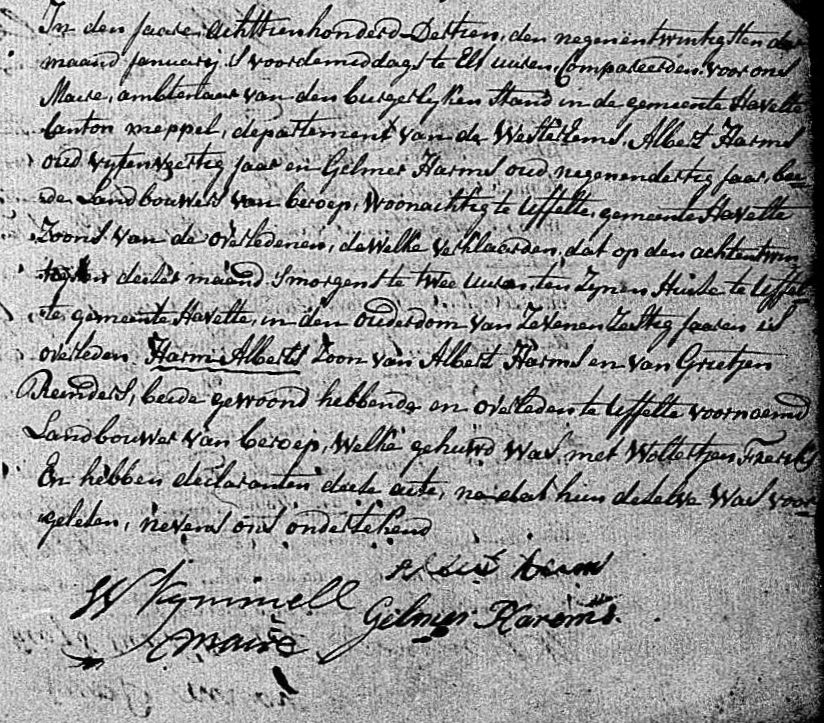 In den Jaare achttienhonderd Dertien, den negenentwintigsten der
maand Januarij 's voordemiddags te Elf uuren, Compareerden voor ons
Maire, ambtenaar van den burgerlyken Stand in de gemeente Havelte
Canton meppel, departement van de Wester Eems, Albert Harms
oud vyfenveertig jaar en Gelmer Harms oud negenendertig jaar, bee-
de Landbouwers van beroep, Woonachtig te Uffelte, gemeente Havelte
Zoons van de overledenen, dewelke verklaarden, dat op den achtentwin
tigsten deeser maand 's morgens te twee uuren ten Zynen Huise te Uffel-
te gemeente Havelte, in den ouderdom van Zevenenzestig Jaaren is
overleden Harm Alberts Zoon van Albert Harms en van Grietjen
Reinders, beide gewoond hebbende en overleden te Uffelte voornoemd
Landbouwer van beroep, Welke gehuwd was met Woltertjen Freriks
En hebben declaranten deese acte, na dat hun deselve Was voor-
gelesen, nevens ons ondertekend
Albert Harms
W Kymmell
Gelmer Harems
maire